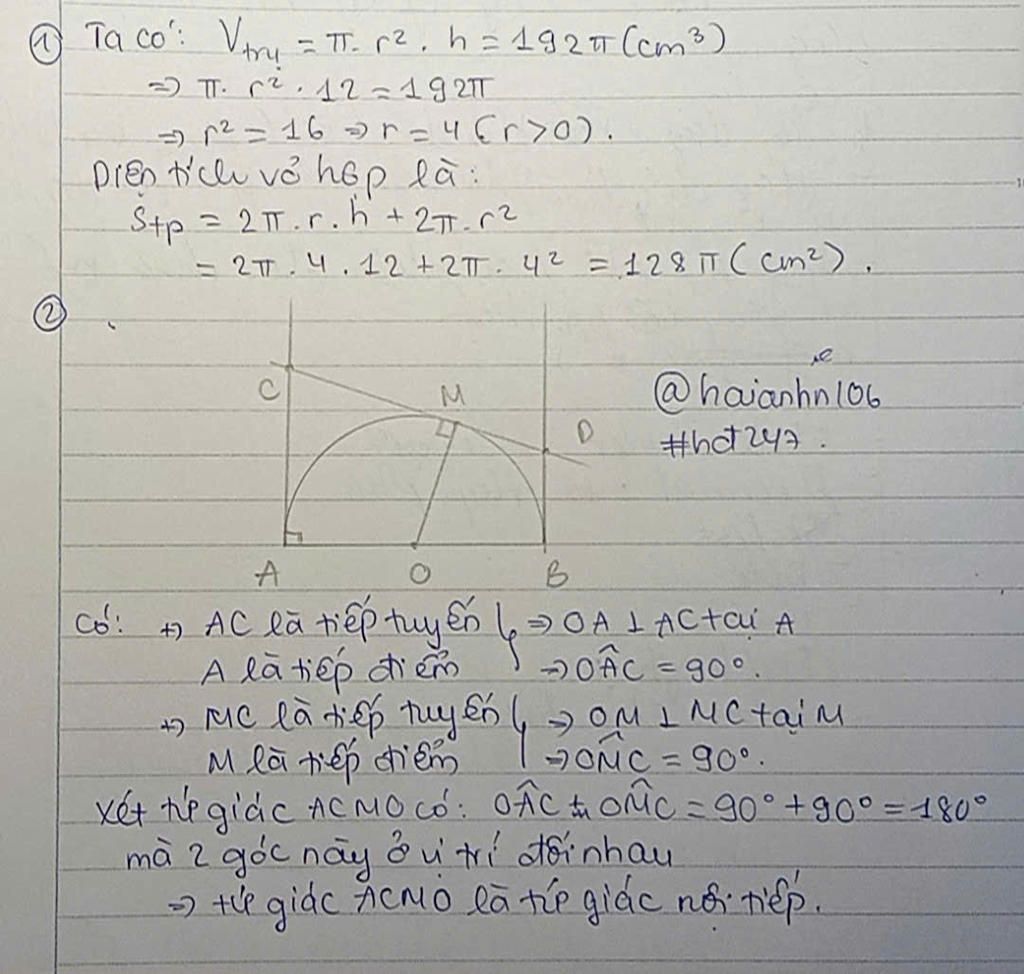 ① Ta có: Vtrụ = π. r². h = 192π (cm³)
⇒ π. r². 12 = 192π
⇒ r² = 16 ⇒ r = 4 (r>0).
Diện tích vỏ hộp là:
Stp = 2π.r.h + 2π.r²
= 2π.4.12+2π.4² = 128π (cm²).
②
C
M
D
@haianhn106
#hdt247.
A O B
Có: +) AC là tiếp tuyến } ⇒ OA ⊥ AC tại A
A là tiếp điểm ⇒ OÂC = 90°.
+) MC là tiếp tuyến } ⇒ OM ⊥ MC tại M
M là tiếp điểm ⇒ OM̂C = 90°.
Xét tứ giác ACMO có: OÂC + OM̂C = 90° + 90° = 180°
mà 2 góc này ở vị trí đối nhau
⇒ tứ giác ACMO là tứ giác nội tiếp.